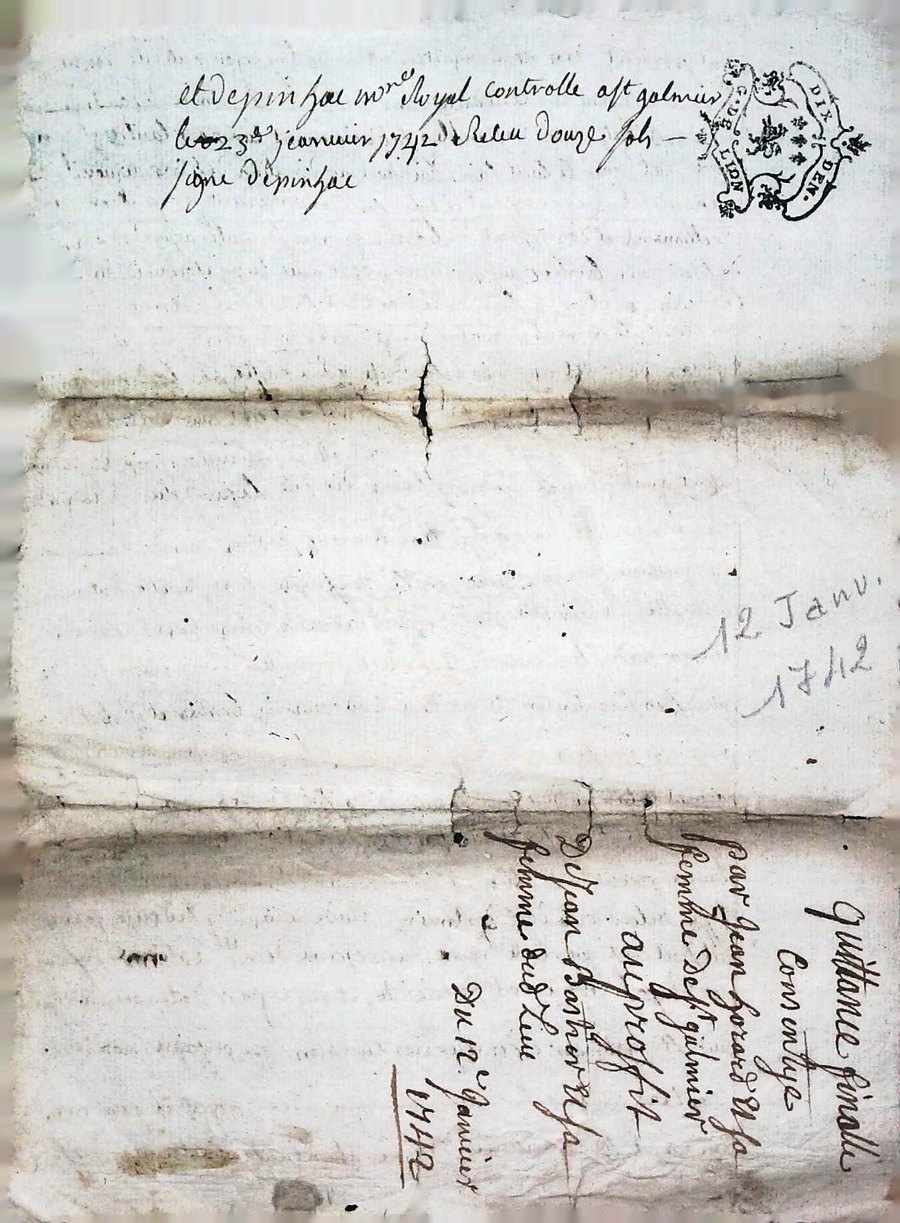 et Depinhac nore Royal controllé a st galmier
le 23e jeanvier 1742 Releu douze sols —
signe Depinhac
G. DE LION
DIX DEN.
12 Janv.
1742
Quittance finalle
Consentye
par Jean horard Et sa
femme De st galmier
au proffit
De Jean Et sa
femme dud Lieu
Du 12e Janvier
1742